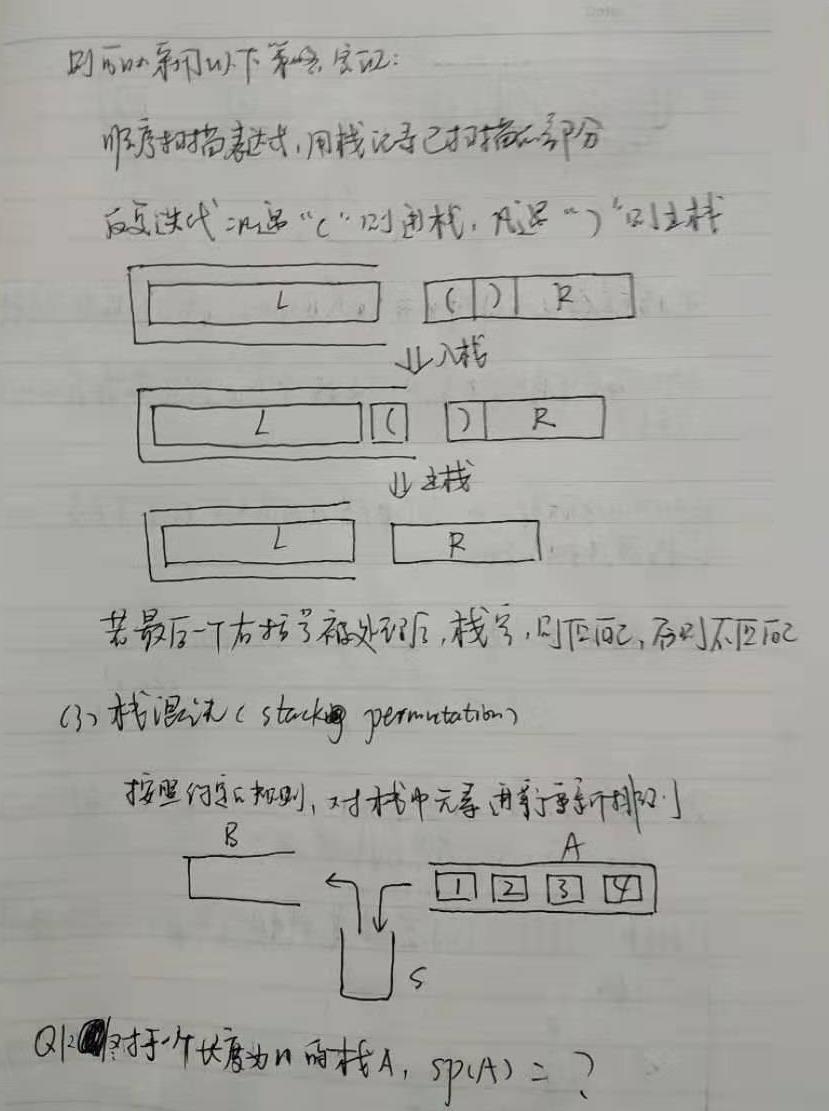 则可以采用以下策略实现:
顺序扫描表达式,用栈记录已扫描的部分
反复迭代:凡遇"("则进栈,凡遇")"则出栈
L ( ) R
入栈
L ( ) R
出栈
L R
若最后一个右括号被处理后,栈空,则匹配,否则不匹配
(3) 栈混洗(stack permutation)
按照约定的规则,对栈中元素进行重新排列
B A
1 2 3 4
S
Q12 对于一个长度为n的栈A, sp(A) = ?